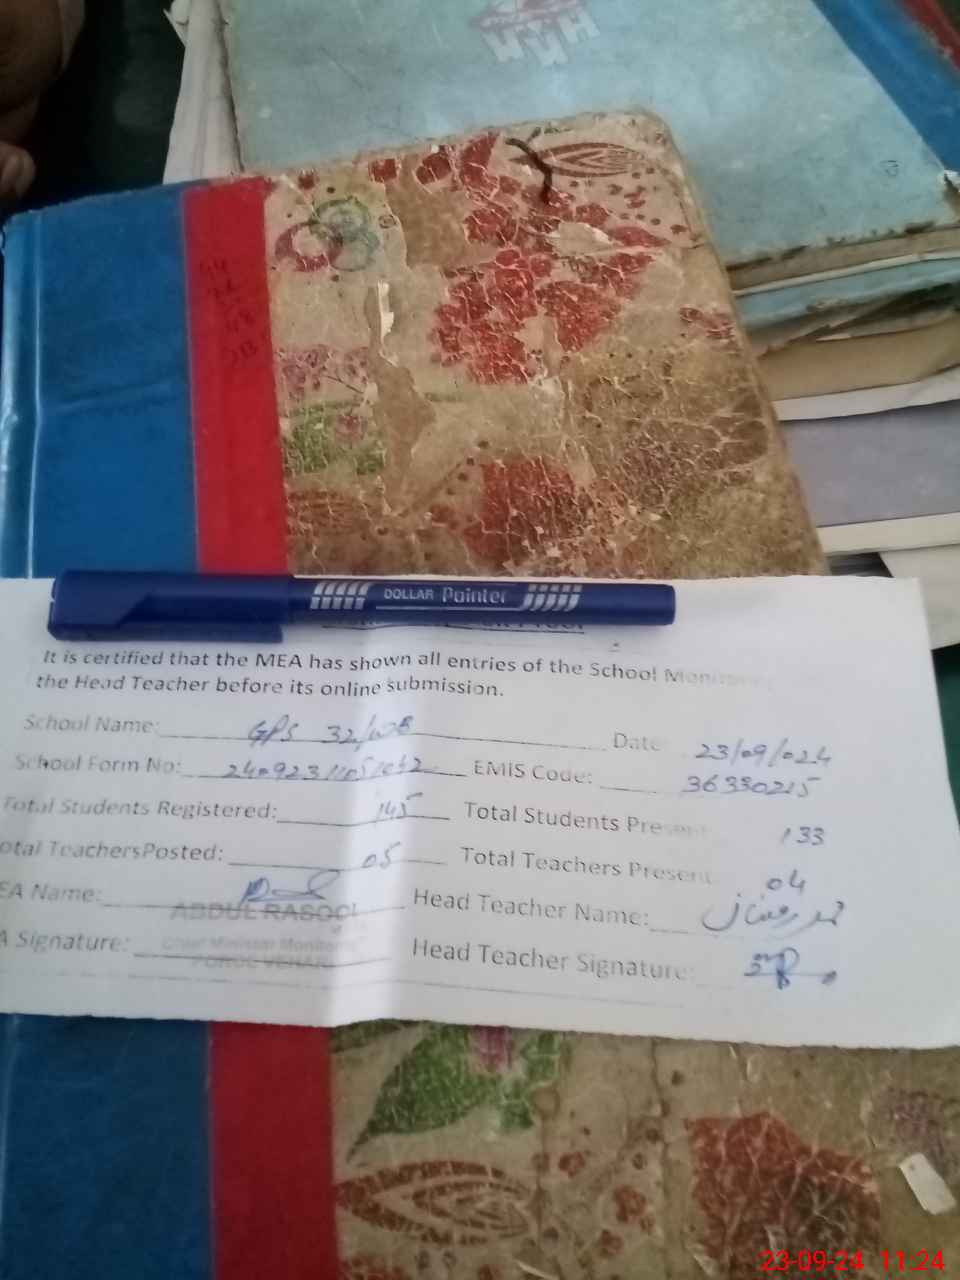 DOLLAR Pointer
It is certified that the MEA has shown all entries of the School Monitoring
the Head Teacher before its online submission.
School Name: GPS 32/WB Date 23/09/024
School Form No: EMIS Code: 36330215
Total Students Registered: 145 Total Students Present 133
Total TeachersPosted: 05 Total Teachers Present 04
EA Name: ABDUL RASOOL Head Teacher Name: محمد رمضان
A Signature: Head Teacher Signature:
23-09-24 11:24